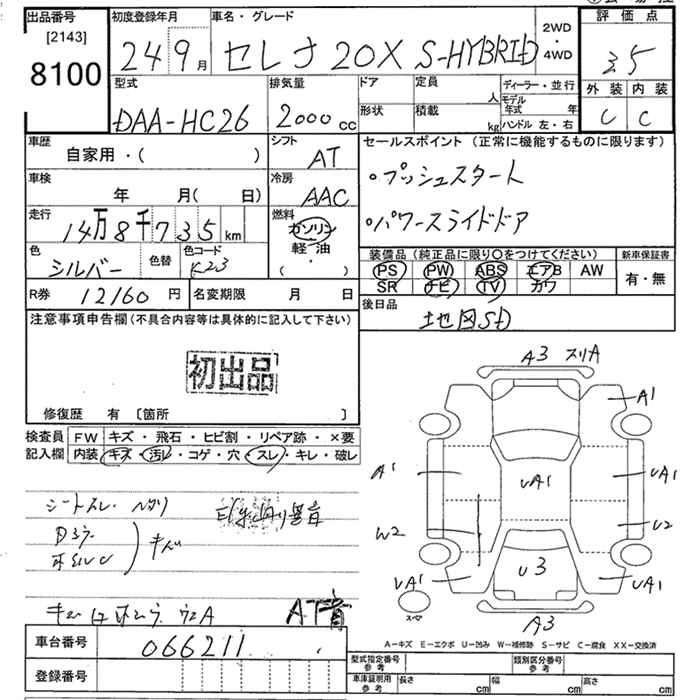 出品番号
[2143]
8100
初度登録年月
24 9月
車名・グレード
セレナ 20X S-HYBRID
2WD
・
4WD
評価点
3.5
外装 内装
C C
型式
DAA-HC26
排気量
2000cc
ドア
形状
定員 人
積載 kg
ディーラー・並行
モデル年式 年
ハンドル 左・右
車歴
自家用・( )
シフト
AT
セールスポイント (正常に機能するものに限ります)
・プッシュスタート
・パワースライドドア
車検
年 月( 日)
冷房
AAC
走行
14万8千735km
燃料
ガソリン
軽油
・( )
色
シルバー
色替
色コード
K23
装備品 (純正品に限り○をつけてください)
PS PW ABS エアB AW
SR ナビ TV カワ
新車保証書
有・無
R券 12160円
名変期限 月 日
後日品
地図SD
注意事項申告欄(不具合内容等は具体的に記入して下さい)
初出品
修復歴 有 〔箇所 〕
検査員記入欄
FW キズ・飛石・ヒビ割・リペア跡・×要
内装 キズ・汚レ・コゲ・穴・スレ・キレ・破レ
シートスレ
AT
A3 スリA
A1
A1
UA1
UA1
W2
U2
U3
UA1
UA1
スペア
A3
車台番号
066211
登録番号
A－キズ E－エクボ U－凹み W－補修跡 S－サビ C－腐食 XX－交換済
型式指定番号 参考
類別区分番号 参考
車庫証明用 参考
長さ cm 幅 cm 高さ cm